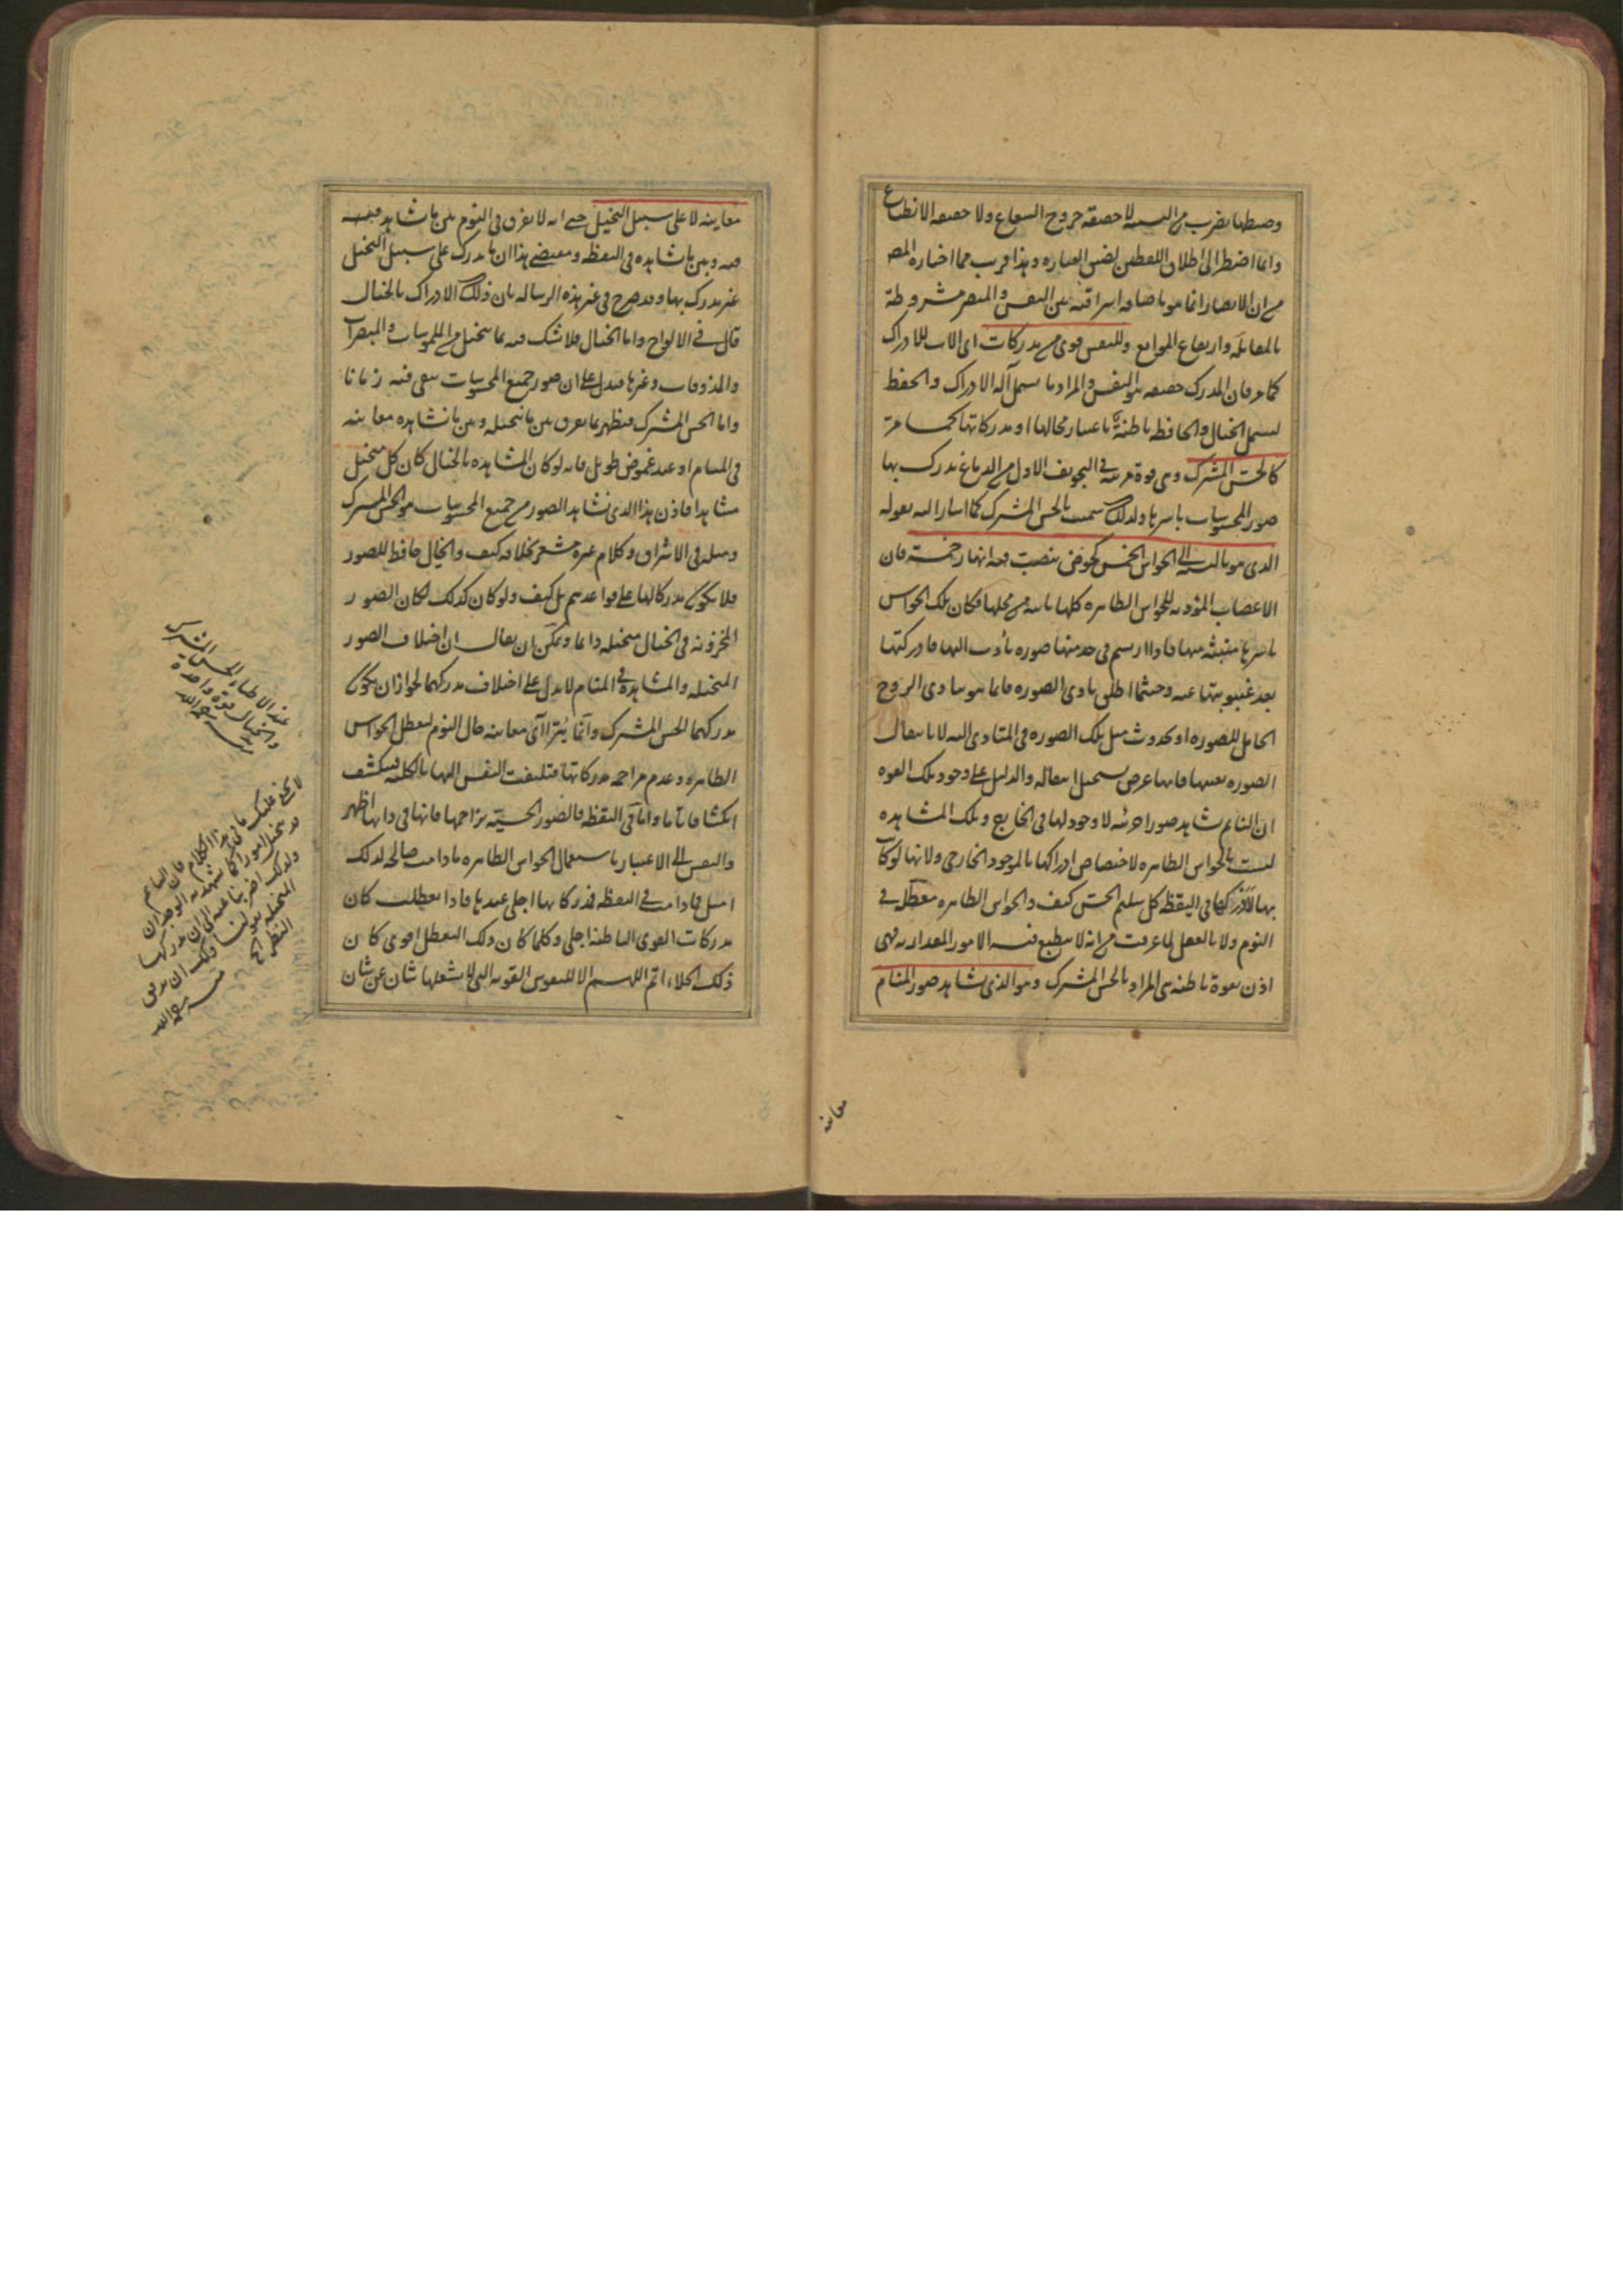 وضبطها بضرب من التشبيه لا حقيقة خروج الشعاع ولا حقيقة الانطباع
وانما اضطر الى اطلاق اللفظين لضيق العبارة وهذا قريب مما اختاره المص
من ان الابصار انما هو باضافة اشراقية بين النفس والمبصر مشروطة
بالمقابلة وارتفاع الموانع وللنفس قوى من مدركات اى الات للادراك
كما مر فان المدرك حقيقة هو النفس والمراد ما يشمل آلة الادراك والحفظ
ليشمل الخيال والحافظة باطنة باعتبار محالها او مدركاتها كما مر
كالحس المشترك وهى قوة مرتبة فى التجويف الاول من الدماغ تدرك بها
صور المحسوسات باسرها ولذلك سميت بالحس المشترك كما اشار اليه بقوله
الذى هو بالنسبة الى الحواس الخمس كحوض ينصب فيه انهار خمسة فان
الاعصاب المؤدية للحواس الظاهرة كلها ناشئة من محلها فكان تلك الحواس
باسرها منبثة منها فاذا ارتسم فى احد منها صورة تأدت اليها فادركتها
بعد غيبوبتها عنه وحيثما اطلق تادى الصورة فانما هو بتادى الروح
الحامل للصورة او بحدوث مثل تلك الصورة فى المتادى اليه لا بانتقال
الصورة بعينها فانها عرض يستحيل انتقاله والدليل على وجود تلك القوة
ان النائم يشاهد صورا جزئية لا وجود لها فى الخارج وتلك المشاهدة
ليست بالحواس الظاهرة لاختصاص ادراكها بالموجود الخارجى ولانها لو كان
بها لادركها فى اليقظة كل سليم الحس كيف والحواس الظاهرة معطلة فى
النوم ولا بالعقل لما عرفت من انه لا ينطبع فيه الامور المقدارية فهى
اذن بقوة باطنة هى المراد بالحس المشترك وهو الذى يشاهد صور المنام
معاينة
معاينة لا على سبيل التخيل حتى انه لا يفرق فى النوم بين ما يشاهد
فيه وبين ما يشاهده فى اليقظة ومقتضى هذا ان ما يدرك على سبيل التخيل
غير مدرك بها وقد صرح فى غير هذه الرسالة بان ذلك الادراك بالخيال
قال فى الالواح واما الخيال فلا شك فيه بما يتخيل من الملموسات والمبصرات
والمذوقات وغيرها فيدل على ان صور جميع المحسوسات يبقى فيه زمانا
واما الحس المشترك فيظهر بما يفرق بين ما نتخيله وبين ما نشاهده معاينة
فى المنام او عند غموض طويل فانه لو كان المشاهدة بالخيال كان كل متخيل
مشاهدا فاذن هذا الذى نشاهد الصور من جميع المحسوسات هو الحس المشترك
ومثله فى الاشراق وكلام غيره مشعر بخلافه كيف والخيال حافظ للصور
فلا يكون مدركا لها على قواعدهم بل كيف ولو كان كذلك لكان الصور
المخزونة فى الخيال متخيلة دائما ويمكن ان يقال ان اختلاف الصور
المتخيلة والمشاهدة فى المنام لا يدل على اختلاف مدركهما لجواز ان يكون
مدركهما الحس المشترك وانما يتراآى معاينة حال النوم لتعطل الحواس
الظاهرة وعدم مزاحمة مدركاتها فتلتفت النفس اليها بالكلية فينكشف
انكشافا تاما واما فى اليقظة فالصور الحسية تزاحمها فانها فى ذاتها اظهر
والنفس الى الاعتبار باستعمال الحواس الظاهرة ما دامت صالحة لذلك
اميل فما دامت فى اليقظة فمدركاتها اجلى عندها فاذا تعطلت كان
مدركات القوى الباطنة اجلى وكلما كان ذلك التعطل اقوى كان
ذلك الجلاء اتم اللهم الا للنفوس القوية التى لا يشغلها شان عن شان
عند الاطباء الحس المشترك
والخيال قوة واحدة
منه رحمه الله
لا يخفى عليك ما فى هذا الكلام فان النائم
قد يتخيل امورا كما شهد به الوجدان
ولذلك اضربنا عنه الى ان مدركها
المتخيلة بقولنا ولك ان
النظر الخ
منه رحمه الله